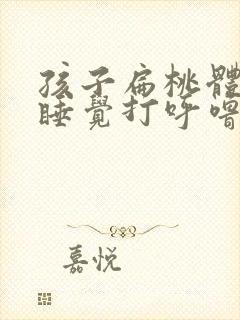 孩子扁桃體
睡覺打呼嚕
嘉悅